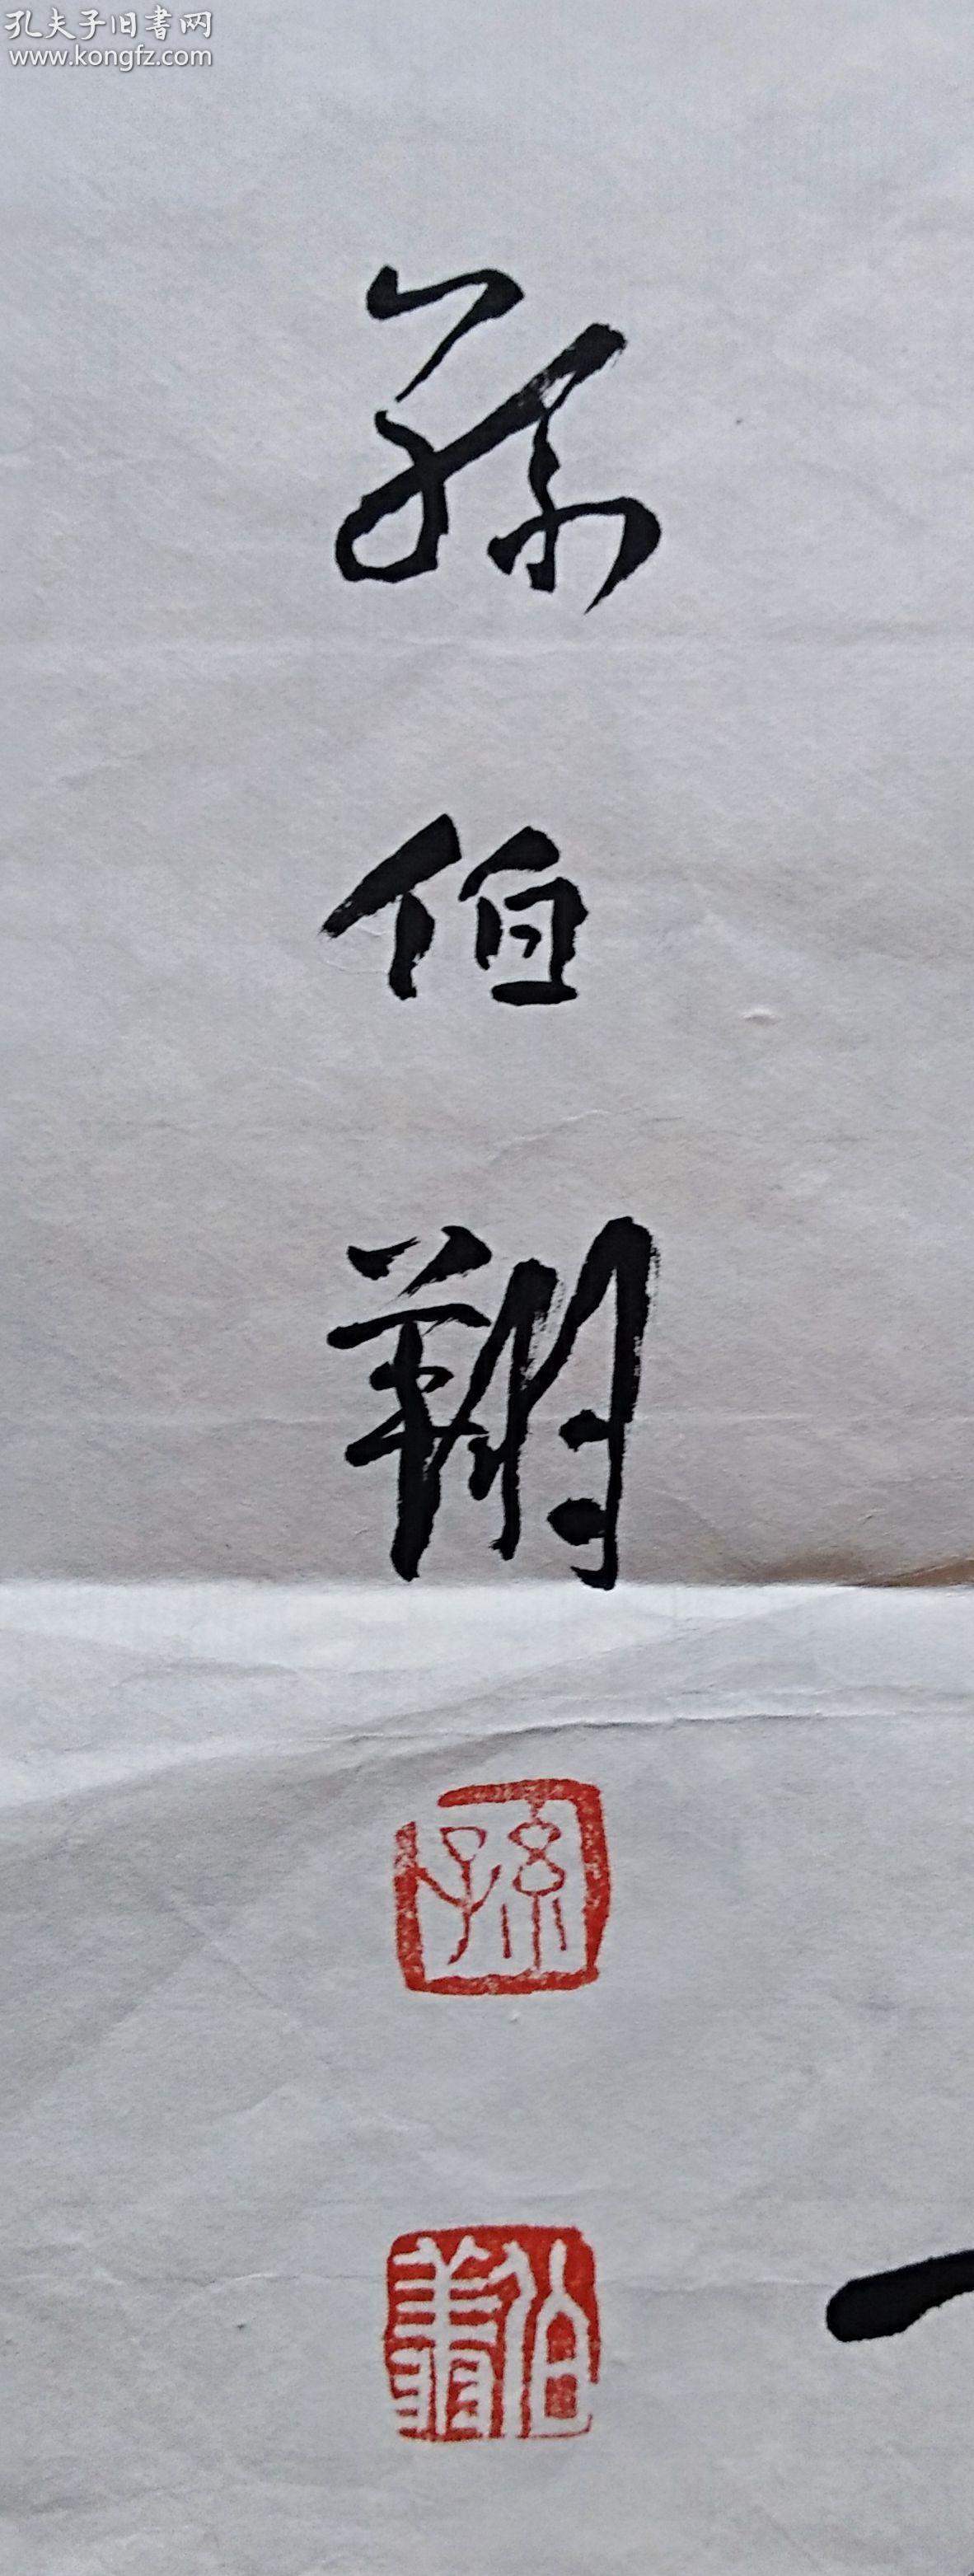 孔夫子旧書网
www.kongfz.com
孫伯翔
孫
伯翔